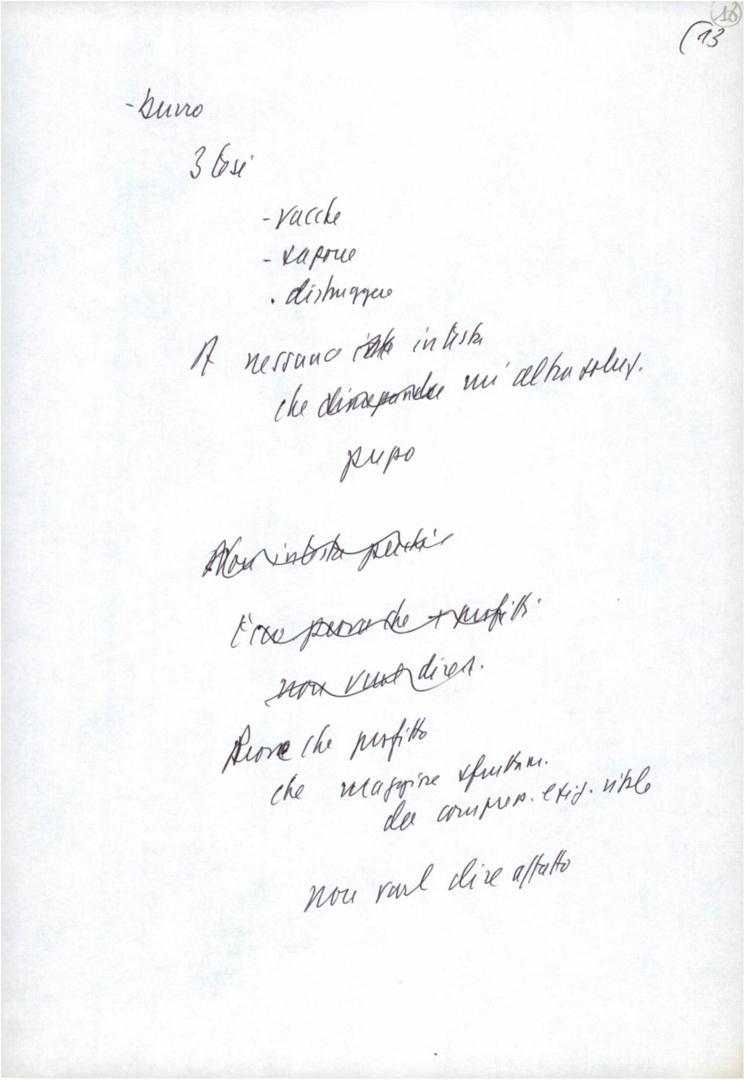 18
(13
- burro
3 Così
- vacche
- sapone
. distruggere
A nessuno in testa
che un'altra soluz.
pupo
Non in testa perché
prova che + profitti
non vuol dire
Prova che profitto
che maggiore sfruttam.
da compress. esig. vitale
non vuol dire affatto